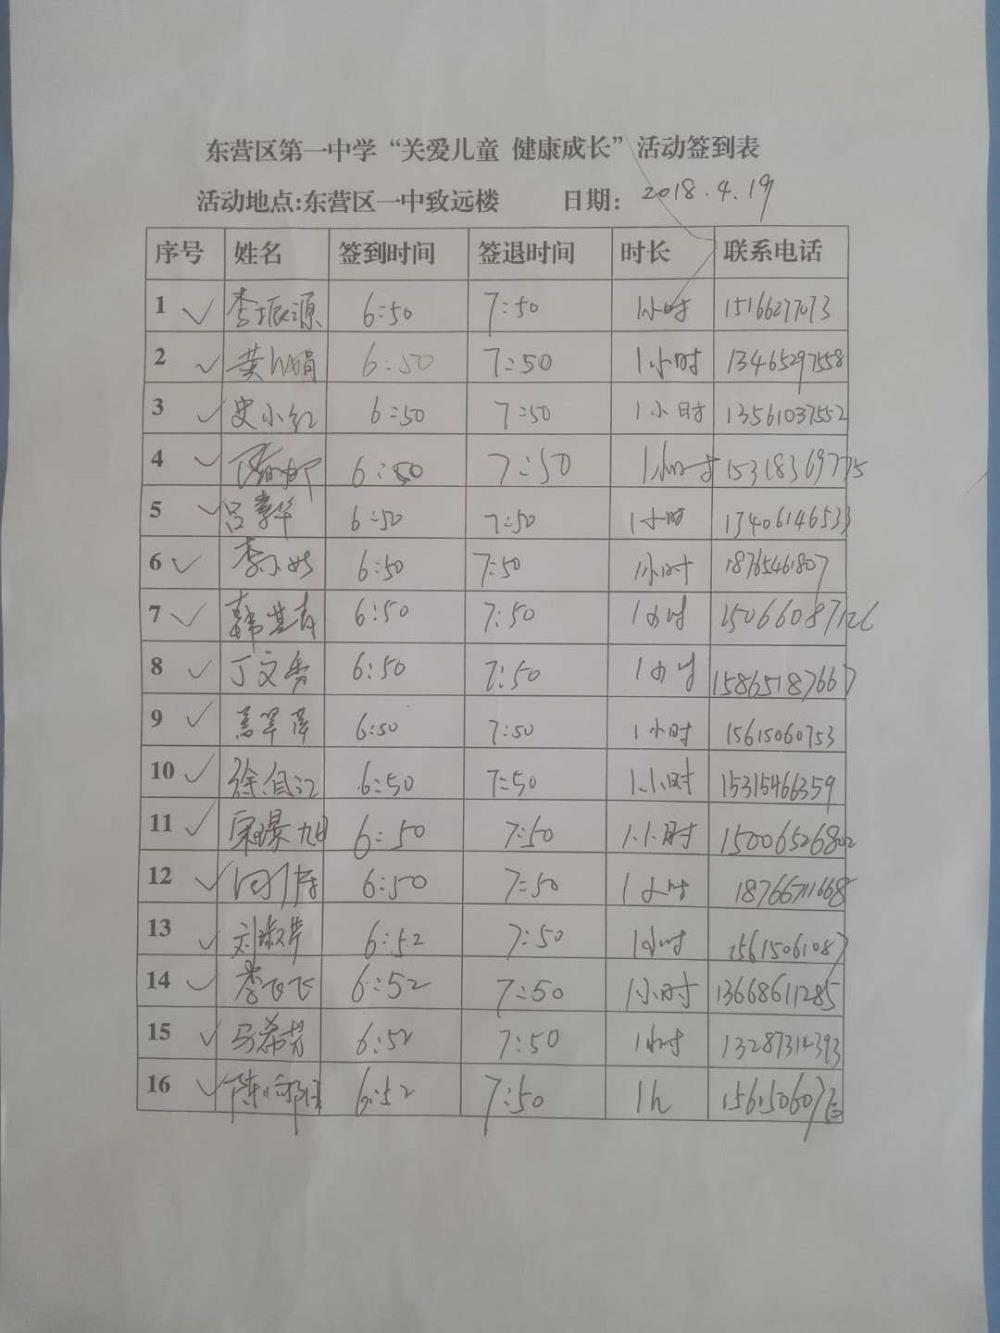 东营区第一中学“关爱儿童 健康成长”活动签到表
活动地点:东营区一中致远楼 日期: 2018.4.19
序号 姓名 签到时间 签退时间 时长 联系电话
1 李振源 6:50 7:50 1小时 15166277073
2 黄 娟 6:50 7:50 1小时 13465297558
3 史小红 6:50 7:50 1小时 13561037552
4 6:50 7:50 1小时 15318369775
5 吕 华 6:50 7:50 1小时 13406146533
6 李小 6:50 7:50 1小时 18765461807
7 韩 6:50 7:50 1小时 15066087126
8 丁文 6:50 7:50 1小时 15865187667
9 翠萍 6:50 7:50 1小时 15615060753
10 徐 江 6:50 7:50 1小时 15315466359
11 旭 6:50 7:50 1小时 15006526802
12 6:50 7:50 1小时 18766711668
13 刘淑芹 6:52 7:50 1小时 15615061087
14 李飞飞 6:52 7:50 1小时 13668611285
15 马希芳 6:52 7:50 1小时 13287314393
16 陈 6:52 7:50 1h